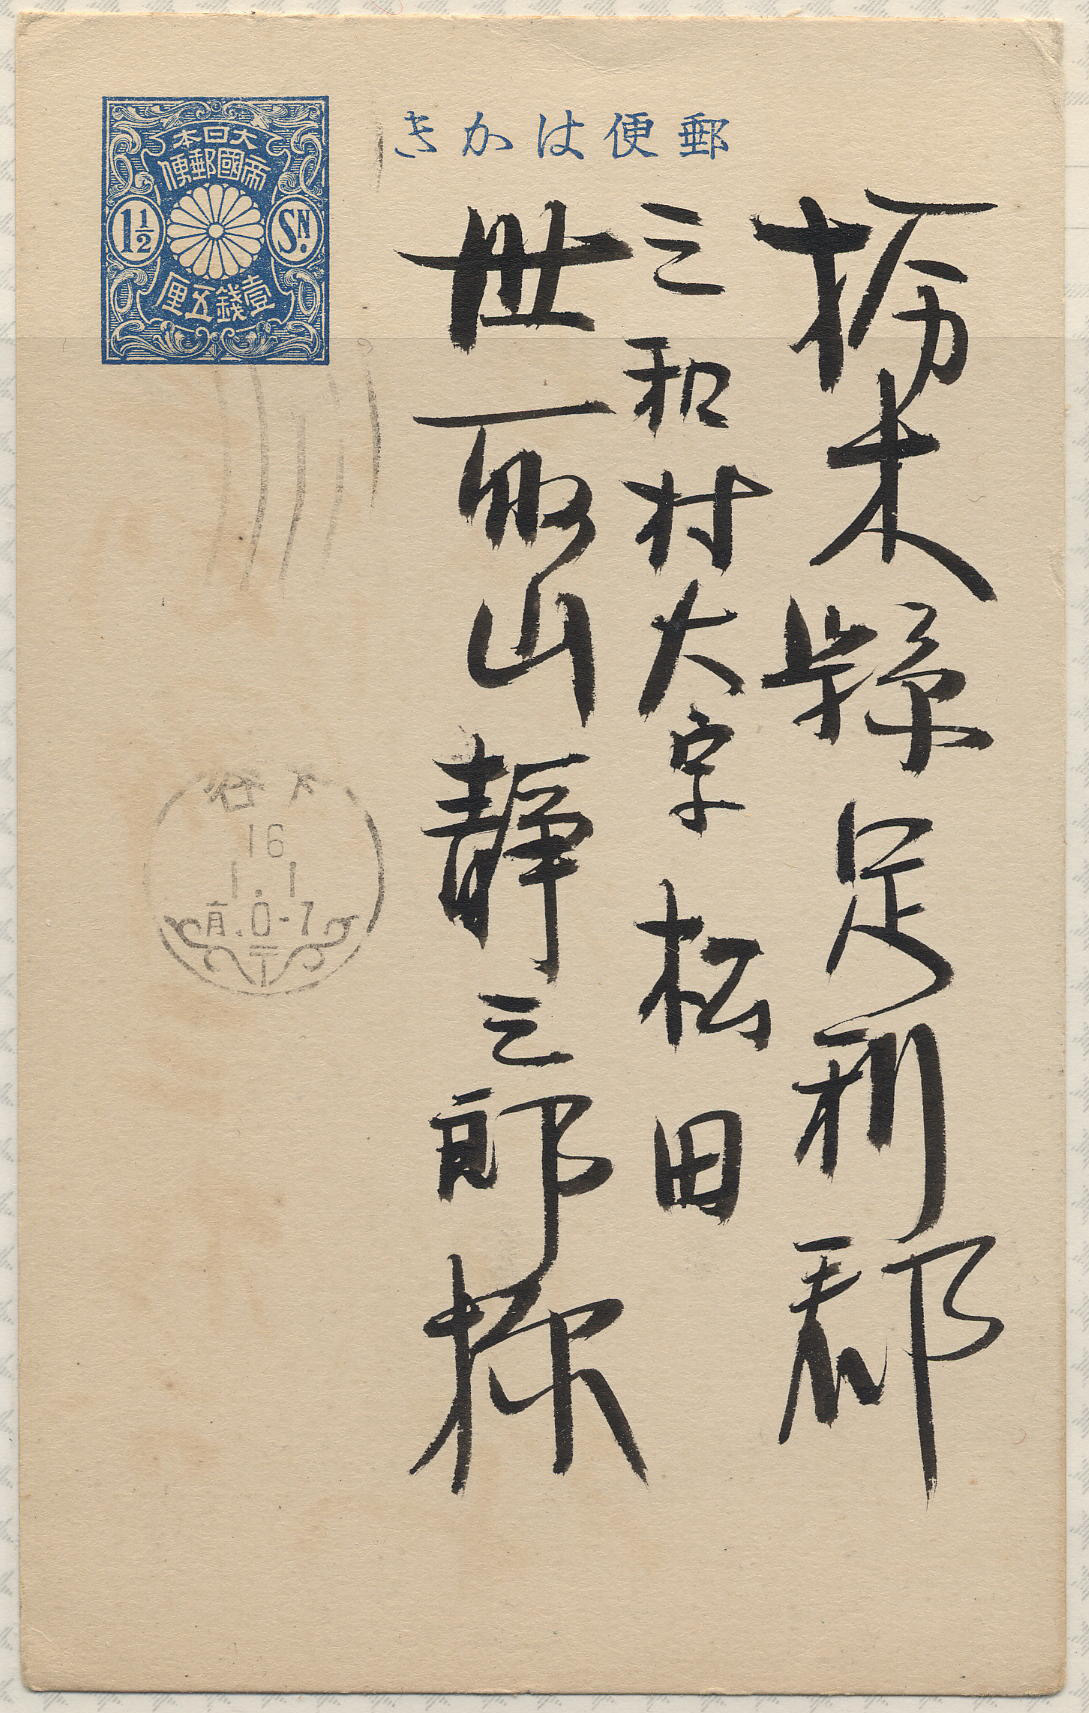 郵便はかき
大日本
帝國郵便
1½
SN.
壹錢五厘
栃木縣足利郡
三和村大字松田
丗取山靜三郎様
下谷
16
1.1
前.0-7
〒